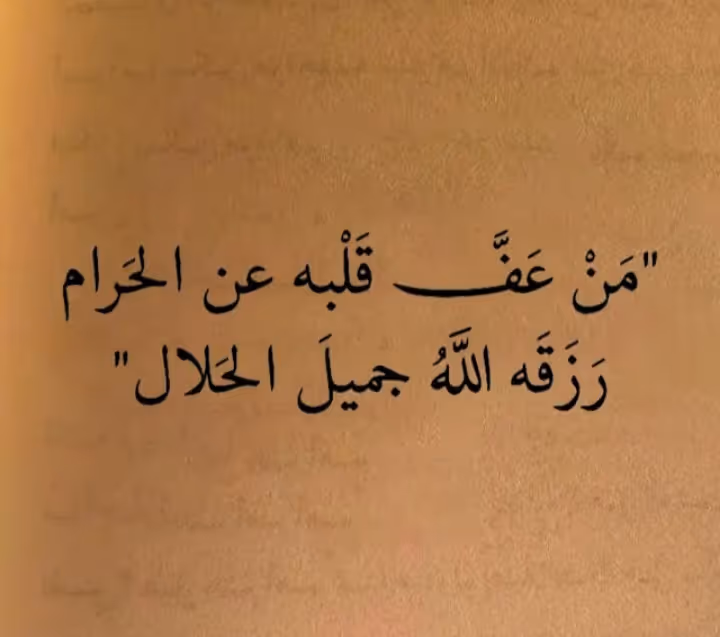 "مَنْ عَفَّ قَلْبه عن الحَرام
رَزَقَه اللَّهُ جميلَ الحَلال"